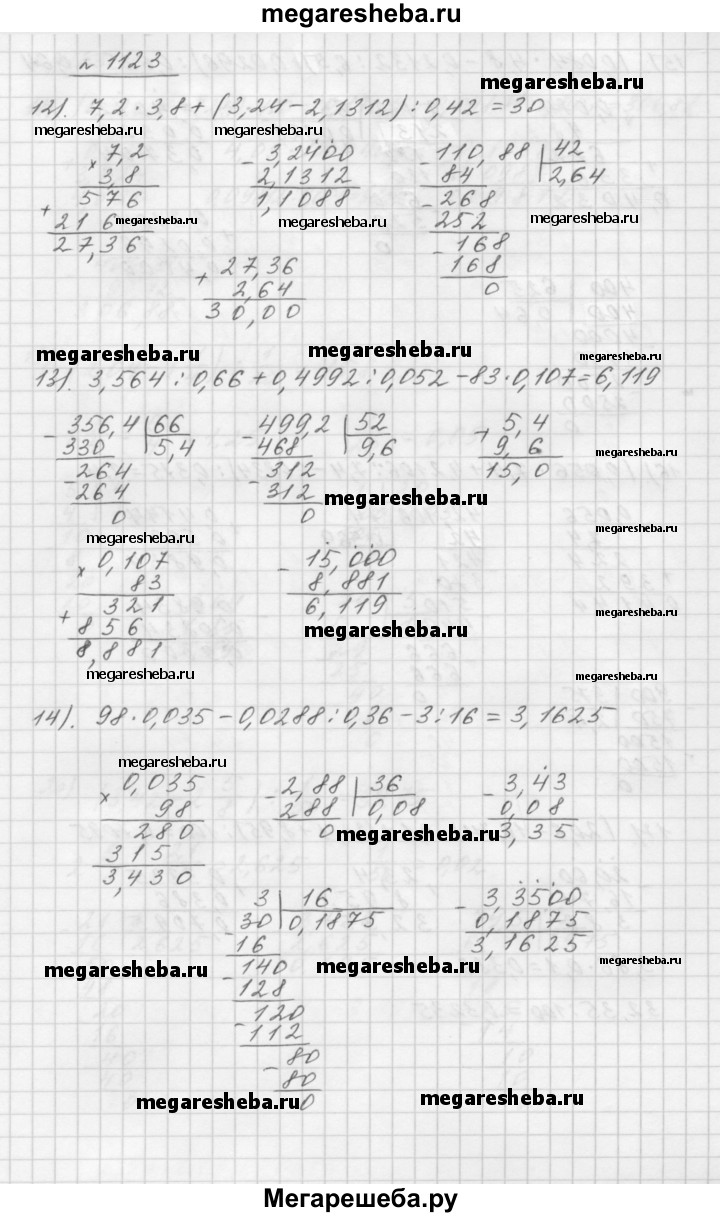 megaresheba.ru
№ 1123
megaresheba.ru
12). 7,2 · 3,8 + (3,24 - 2,1312) : 0,42 = 30
megaresheba.ru megaresheba.ru
× 7,2 - 3,2400 - 110,88 | 42
3,8 2,1312 84 2,64
576 1,1088 - 268
+ 216 megaresheba.ru megaresheba.ru 252 megaresheba.ru
27,36 - 168
+ 27,36 168
2,64 0
30,00
megaresheba.ru megaresheba.ru megaresheba.ru
13). 3,564 : 0,66 + 0,4992 : 0,052 - 83 · 0,107 = 6,119
- 356,4 | 66 - 499,2 | 52 + 5,4
330 5,4 468 9,6 9,6
- 264 - 312 15,0 megaresheba.ru
264 312 megaresheba.ru
0 0
megaresheba.ru megaresheba.ru
× 0,107 - 15,000
83 8,881
321 6,119
+ 856 megaresheba.ru megaresheba.ru
8,881
megaresheba.ru megaresheba.ru
14). 98 · 0,035 - 0,0288 : 0,36 - 3 : 16 = 3,1625
megaresheba.ru
× 0,035 - 2,88 | 36 - 3,43
98 288 0,08 0,08
280 0 megaresheba.ru 3,35
315
3,430
3 | 16 - 3,3500
- 30 0,1875 0,1875
16 3,1625
megaresheba.ru - 140 megaresheba.ru megaresheba.ru
128
- 120
112
- 80
80
megaresheba.ru 0 megaresheba.ru
Мегарешеба.ру